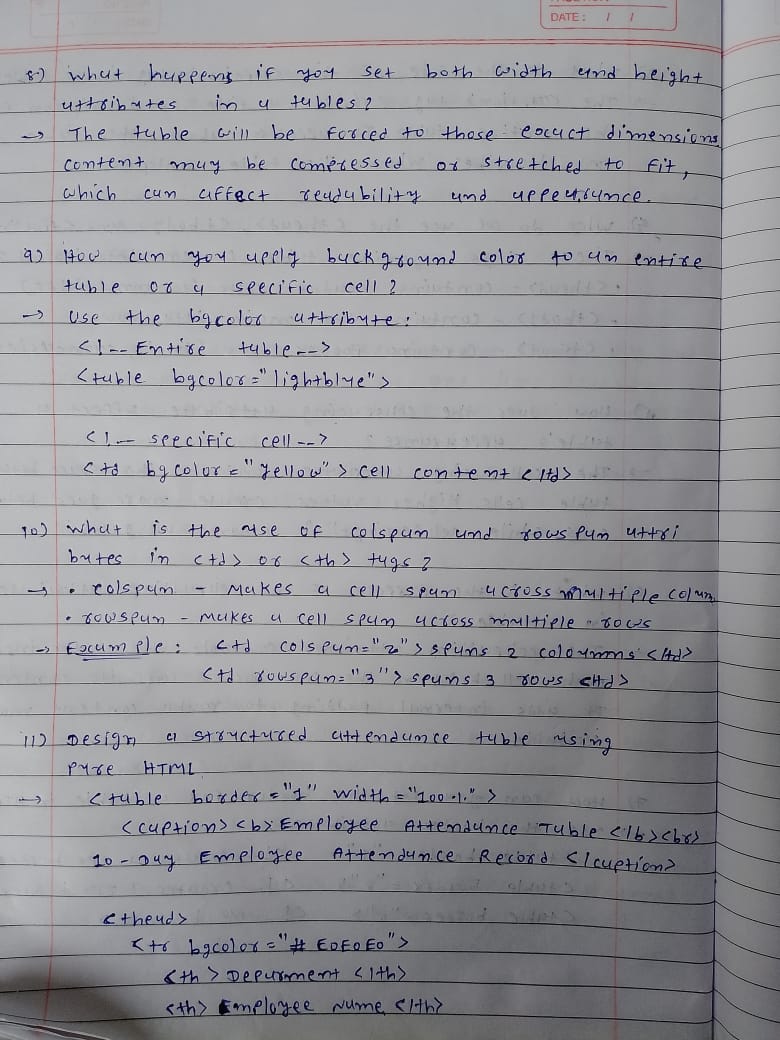 DATE: / /
8) What happens if you set both width and height
attributes in a tables?
→ The table will be forced to those exact dimensions
content may be compressed or stretched to fit,
which can affect readability and appearance.
9) How can you apply background color to an entire
table or a specific cell?
→ Use the bgcolor attribute:
<!-- Entire table -->
<table bgcolor="lightblue">
<!-- specific cell -->
<td bgcolor="Yellow"> cell content </td>
10) What is the use of colspan and rowspan attri
butes in <td> or <th> tags?
→ • colspan - Makes a cell span across multiple colum
• rowspan - makes a cell span across multiple rows
→ Example: <td colspan="2"> spans 2 coloumns </td>
<td rowspan="3"> spans 3 rows </td>
11) Design a structured attendance table using
pure HTML
→ <table border="1" width="100%">
<caption><b>Employee Attendance Table </b><br>
10-Day Employee Attendance Record </caption>
<thead>
<tr bgcolor="#E0E0E0">
<th> Deparment </th>
<th> Employee Name </th>